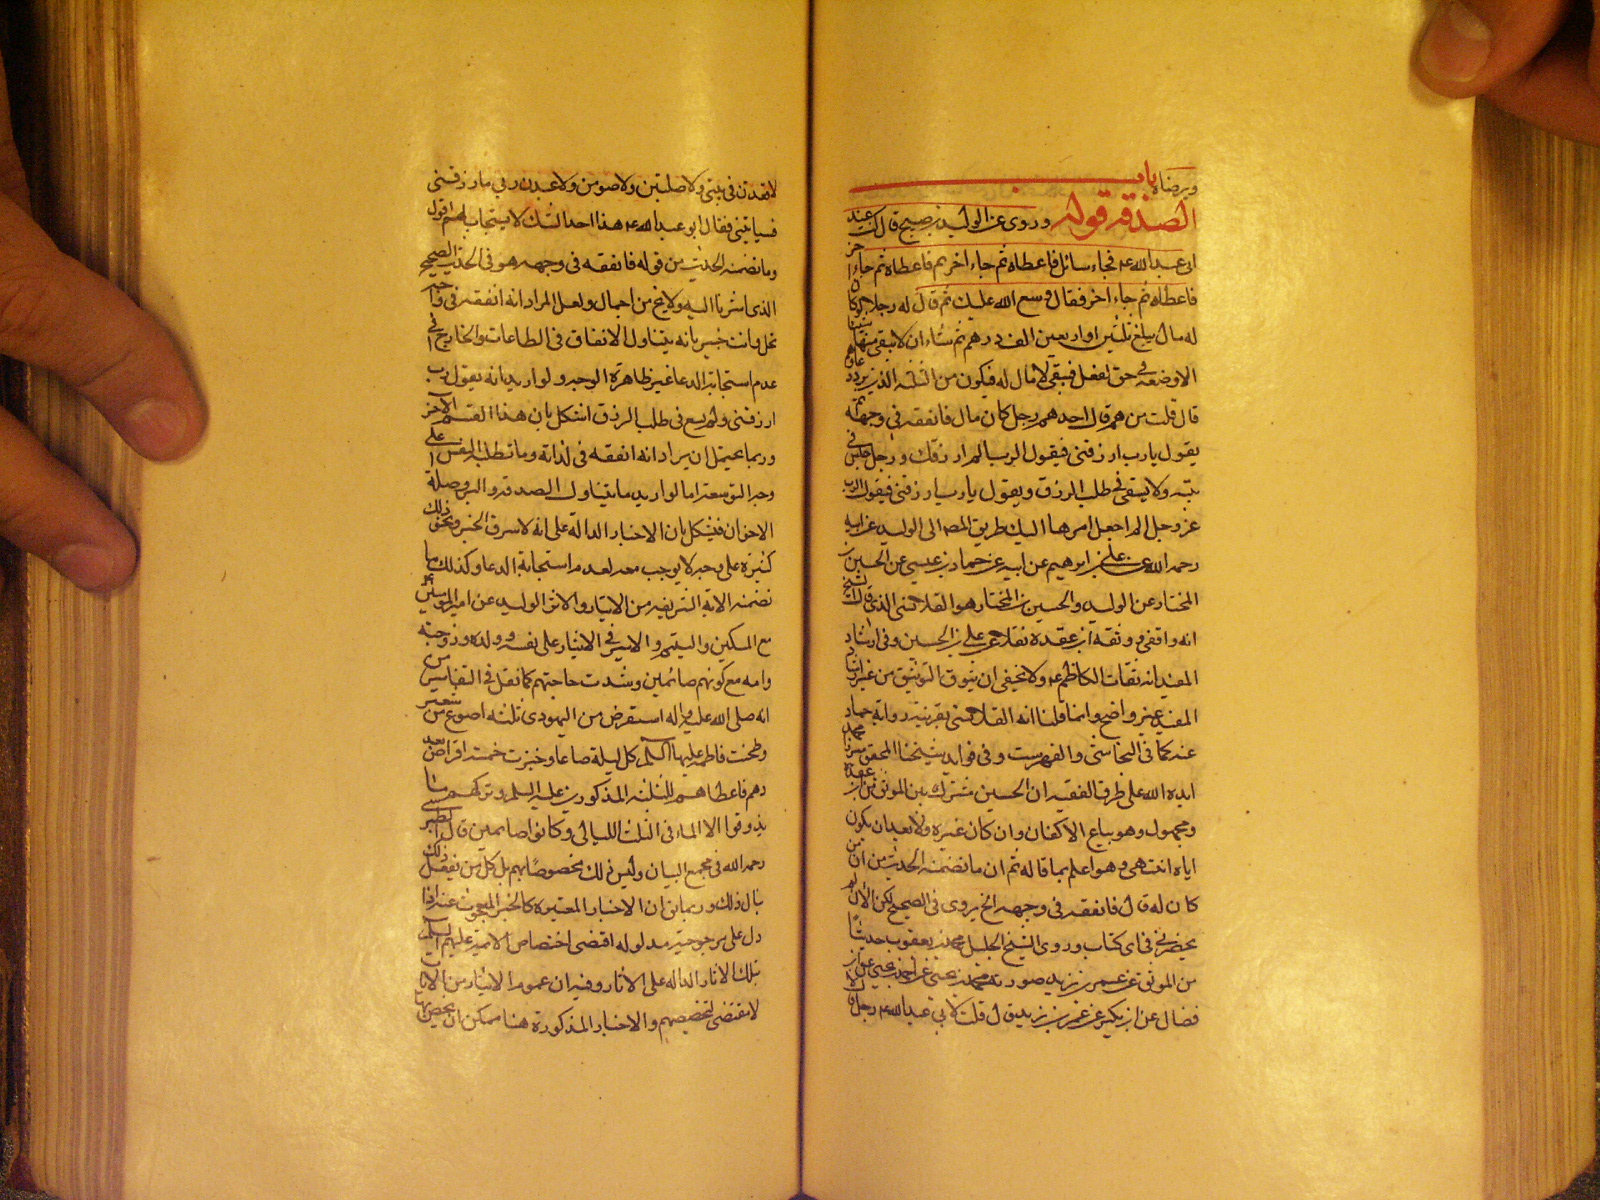 ويرضاه باب
الصدقة قوله وروى عن الوليد بن صبيح قال كنت عند
ابى عبد الله ع فجاء سائل فاعطاه ثم جاء اخر ثم فاعطاه ثم جاء اخر
فاعطاه ثم جاء اخر فقال وسع الله عليك ثم قال له رجلا لو كان
له مال يبلغ ثلثين او اربعين الف درهم ثم شاء ان لا يبقى منها شيئا
الا وضعه فى حق لفعل فبقى لا مال له فيكون من الثلثة الذين يرد دعاؤهم
قال قلت من هم قال احدهم رجل كان مال فانفقه فى وجهه ثم
يقول يارب ارزقنى فيقول الرب الم ارزقك ورجل جلس فى
بيته ولا يسعى فى طلب الرزق ويقول يارب ارزقنى فيقول الرب
عز وجل الم اجعل امرها اليك طريق المص الى الوليد عن ابيه
رحمه الله عن على بن ابرهيم عن ابيه عن حماد بن عيسى عن الحسين بن
المختار عن الوليد والحسين بن المختار هو القلانسى الذى قال الشيخ
انه واقفى ووثقه ابن عقدة نقلا عن على بن الحسين وفى ارشاد
المفيد انه ثقات الكاظم ع ولا يخفى ان ثبوت التوثيق من غير ارشاد
المفيد غير واضح وانما قلنا انه القلانسى بقرينة رواية حماد
عنه كما فى النجاشى والفهرست وفى فوايد شيخنا المحقق ميرزا محمد
ايده الله على طرق الفقيه ان الحسين مشترك بين الموثق من ابن عقدة
ومجهول وهو بياع الاكفان وان كان غيره ولا يبعد ان يكون
اياه انتهى وهو اعلم بما قاله ثم ان ما تضمنه الحديث من ان من
كان له قال فانفقه فى وجهه الخ يروى فى الصحيح لكن الان لم
يحضرنى فى اى كتاب وروى الشيخ الجليل محمد بن يعقوب حديثا
من الموثق عن عمر بن يزيد صورته محمد بن يحيى عن احمد بن محمد بن عيسى عن ابن
فضال عن ابن بكير عن عمر بن يزيد قال قلت لابى عبد الله ع رجل قال
لاقعدن فى بيتى ولاصلين ولاصومن ولاعبدن ربى ما رزقنى
فسياتينى فقال ابو عبد الله ع هذا احد الثلثة الذين لا يستجاب لهم اقول
وما تضمنه الحديث من قوله فانفقه فى وجهه هو فى الحديث الصحيح
الذى اشرنا اليه ولا يخ من اجمال ولعل المراد انه انفقه فى وجه
تحل وانت خبير بانه يتناول الانفاق فى الطاعات والخارج فى
عدم استجابة الدعا غير ظاهرة الوجه ولو اريد انه يقول رب
ارزقنى ولم يسع فى طلب الرزق اشكل بان هذا القسم الاخر
وربما يحتمل ان يراد انه انفقه فى لذاته وما تطلب النفس على
وجه التوسعة اما لو اريد ما يتناول الصدقة والبر وصلة
الاخوان فيشكل بان الاخبار الدالة على انه لا سرف فى الخير ونحو ذلك
كثيرة على وجه لا يوجب معه لعدم استجابة الدعا وكذلك ما
تضمنه الاية الشريفة من الايثار والاثر الوارد عن امير المؤمنين ع
مع المسكين واليتيم والاسير فى الايثار على نفسه وولده وزوجته
وامه مع كونهم صائمين وشدت حاجتهم كما نقل فى التفاسير من
انه صلى الله عليه واله استقرض من اليهودى ثلثة اصوع من شعير
وطحنت فاطمة عليها السلم كل ليلة صاعا وخبزت خمسة اقراص بعدد
دهم فاعطاهم للثلثة المذكورين عليه السلم وتركهم ما
يذوقوا الا الماء فى الثلث الليالى وكانوا صائمين قال الطبرسى
رحمه الله فى مجمع البيان وليس ذلك مخصوصا بهم بل كل من يفعل ذلك
ينال ذلك وربما يق ان الاخبار المعتبرة كالخبر المبحوث عنه اذا
دل على مرجوحية مدلوله اقتضى اختصاص الائمة عليهم السلم
بتلك الاثار الدالة على الايثار وفيه ان عموم الايثار من الايات
لا يقتضى تخصيصهم والاخبار المذكورة هنا ممكن ان يخص بها